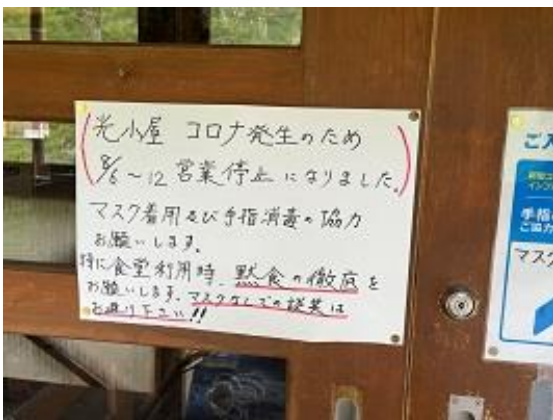 光小屋 コロナ発生のため
8/6～12 営業停止になりました。
マスク着用及び手指消毒の協力
お願いします。
特に食堂利用時、黙食の徹底を
お願いします。マスクなしでの談笑は
お避け下さい!!
手指
ご協力
マスク